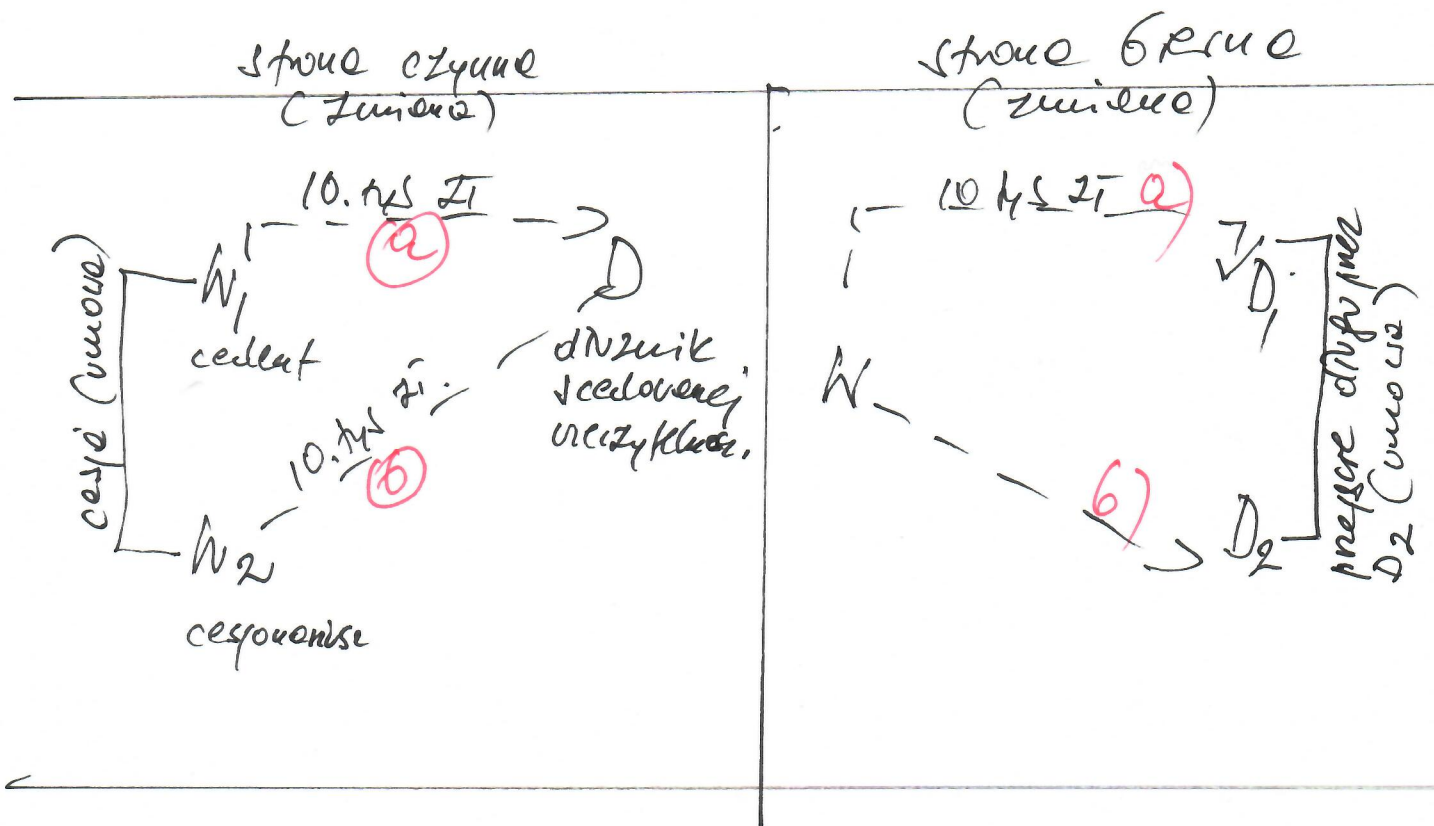 strona czynna
(zmiana)
10. tys zł
a
W1
cedent
D
dłużnik
scedowanej
wierzytelnoś.
cesja (umowa)
10. tys zł.
b
W2
cesjonariusz
strona bierna
(zmiana)
10 tys zł a)
D1
W
b)
D2
przejęcie długu przez
D2 (umowa)